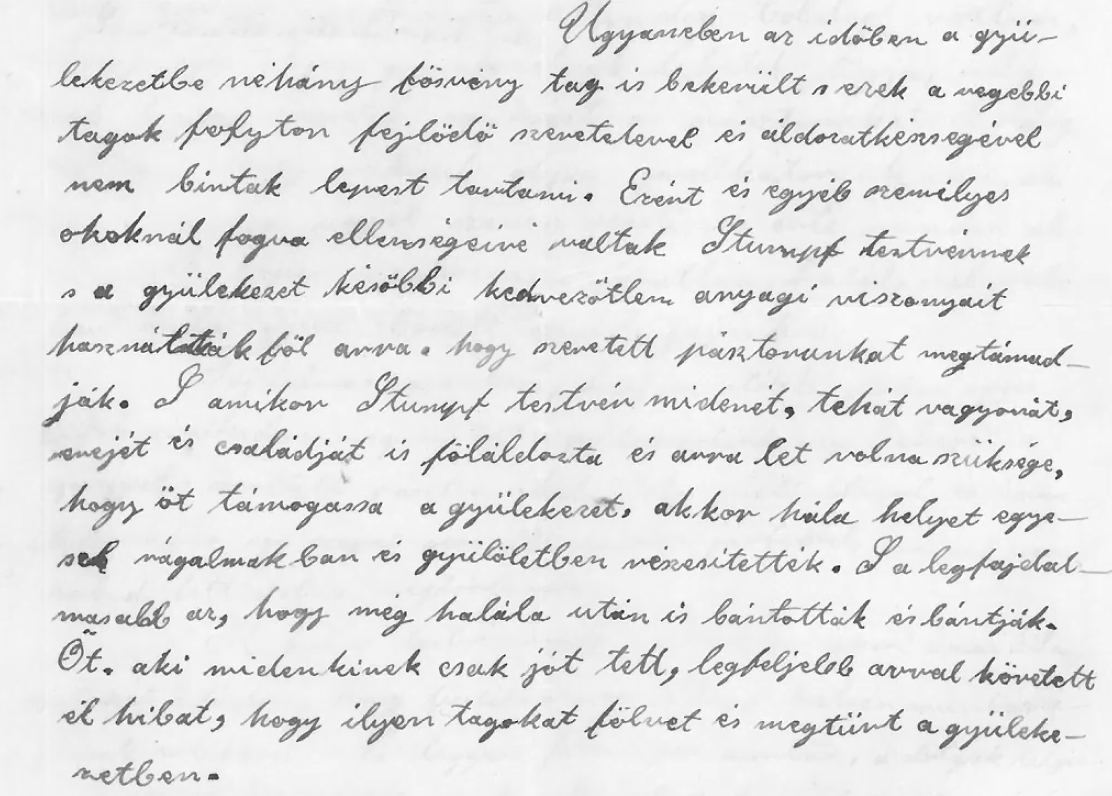 Ugyanebben az időben a gyü-
lekezetbe néhány fösvény tag is bekerült s ezek a régebbi
tagok folyton fejlődő szeretetével és áldozatkészségével
nem birtak lépést tartani. Ezért és egyéb személyes
okoknál fogva ellenségeivé váltak Stumpf testvérnek
s a gyülekezet későbbi kedvezőtlem anyagi viszonyait
használták föl arra. hogy szeretett pásztorunkat megtámad-
ják. S amikor Stumpf testvér midenét, tehát vagyonát,
erejét és családját is föláldozta és arra let volna szüksége,
hogy őt támogassa a gyülekezet, akkor hála helyet egye-
sek rágalmakban és gyülöletben részesitették. S a legfájdal-
masabb az, hogy még halála után is bántották és bántják.
Őt. aki midenkinek csak jót tett, legfeljebb avval követett
el hibát, hogy ilyen tagokat fölvet és megtürt a gyüleke-
zetben.